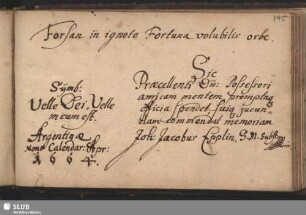 195
Forsan in ignoto Fortuna volubilis orbe.
Symb:
Velle Dei, Velle
meum est.
Argentinæ
Calendar: Apr:
1664.
Sic
Præcellenti Dn: Possessori
amicam mentem, promptaq
officia spondet, suiq jucun-
dam commendat memoriam
Joh. Jacobus
SLUB
Wir führen Wissen.